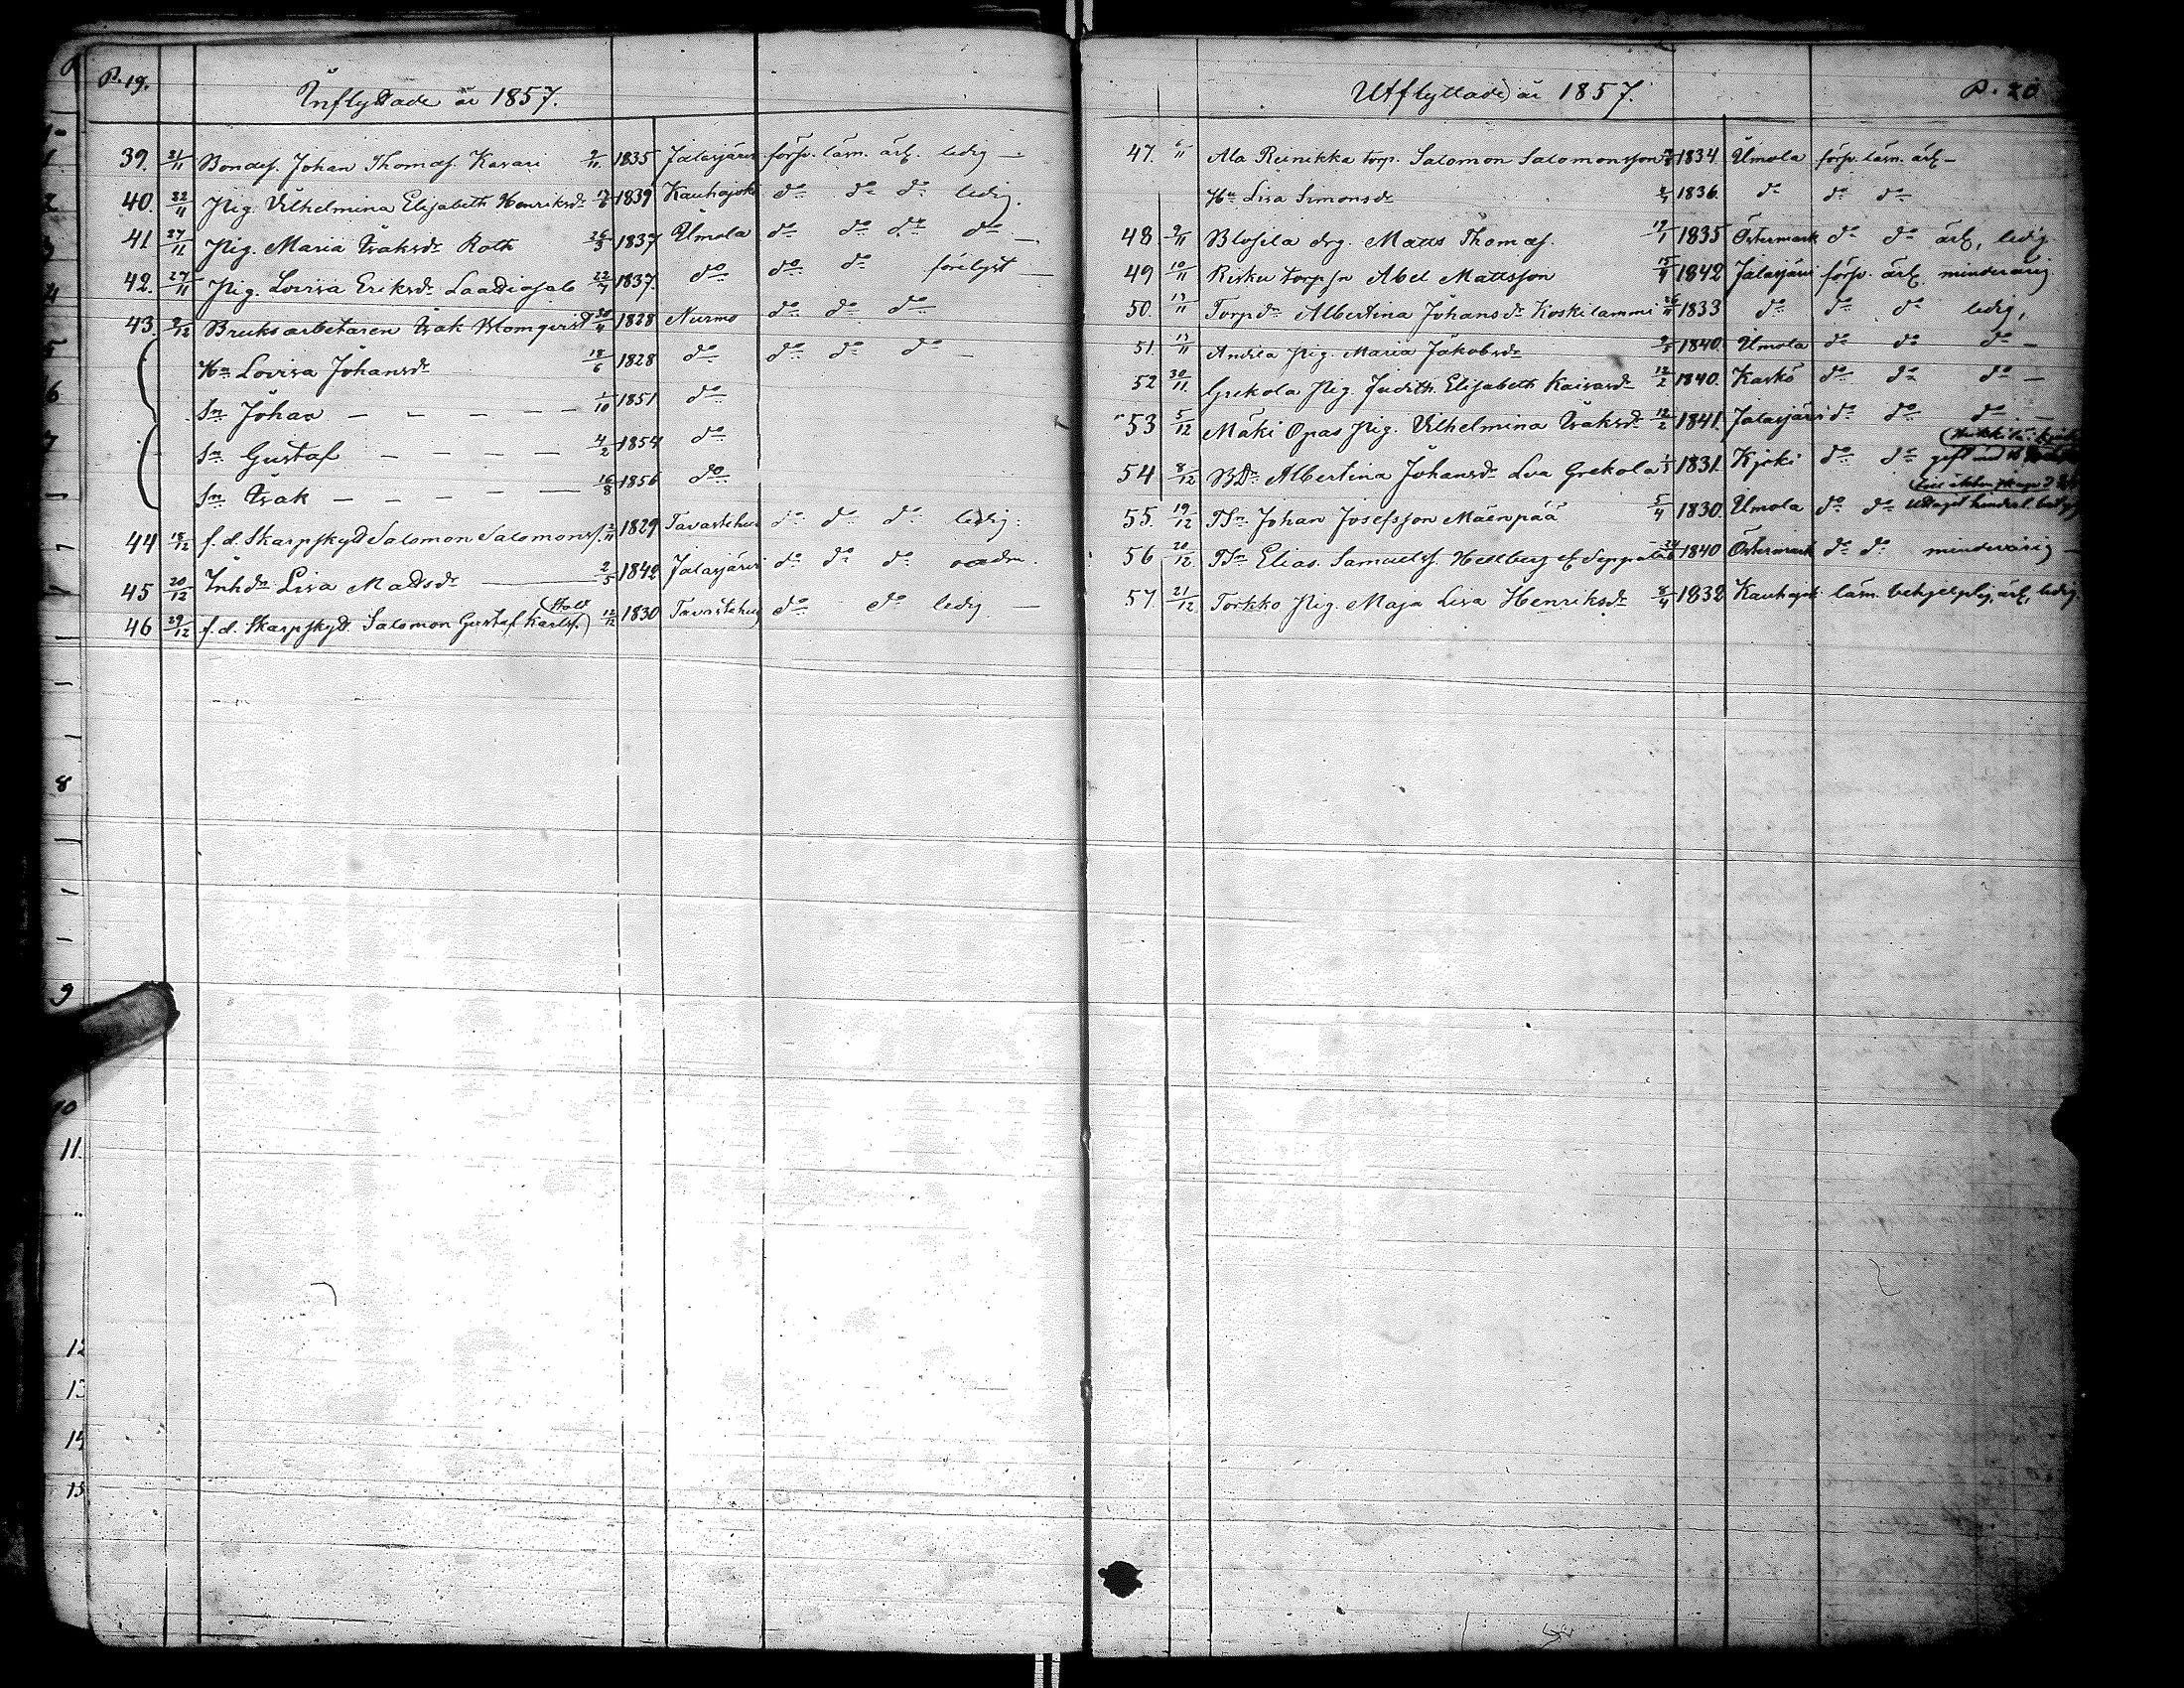 P. 19.
Inflyttade år 1857.
39. 21/11 Bondes. Johan Thomas. Kavari 9/11 1835 Jalasjärvi förfv. läsn. ärl. ledig —
40. 22/11 Pig. Vilhelmina Elisabeth Henriksdr 17/6 1839 Kauhajoki do do do ledig.
41 27/11 Pig. Maria Isaksdr Roth 26/3 1837 Ilmola do do do do —
42. 27/11 Pig. Lovisa Eriksdr 1837. do do do förelyst —
43. 9/12 Bruksarbetaren Isak Blomqvist 1828 Nurmo do do do
Hu Lovisa Johansdr 18/6 1828 do do do do —
Sn Johan — — — — 1/10 1851 do
Sn Gustaf — — — — 4/2 1854 do
Sn Isak — — — — — 16/8 1856 do
44 18/12 f. d. Skarpskytt Salomon Salomonss. 1829 Tavastehus do do do ledig.
45 20/12 Inhdr Lisa Mattsdr — 2/5 1842 Jalasjärvi do do do oadm.
46 29/12 f. d. Skarpskytt Salomon Gustaf Karlss. 12/12 1830 Tavastehus do do ledig —
Utflyttade år 1857.
P. 20
47. 6/11 Ala Reinikka torp. Salomon Salomonsson 1834. Ilmola förfv. läsn. ärl —
Hu Lisa Simonsdr 1836. do do do
48 9/11 Blosila drg. Matts Thomas. 19/1 1835 Östermark do do ärl, ledig
49 10/11 Risku torp.sn Abel Mattsson 15/9 1842 Jalasjärvi förfv. ärl minderårig
50. 13/11 Torpdr Albertina Johansdr Koskilammi 1833 do do do ledig,
51. 13/11 Andila Pig. Maria Jakobsdr 1840. Ilmola do do do —
52 30/11 Grekola Pig. Judith Elisabeth Kaisasdr 12/2 1840. Kaskö do do do —
53 5/12 Mäki Opas Pig. Vilhelmina Isaksdr 12/2 1841. Jalasjärvi do do do —
54 8/12 BDr Albertina Johansdr Lua Grekola 1/3 1831. Kjoki do do gift med
55. 19/12 TSn Johan Josefsson Mäenpää 5/4 1830. Ilmola do do uttagit hinderl. betyg
56 20/12 TSn Elias Samuelss. Hellberg 1840 Östermark do do minderårig —
57. 21/12 Torkko Pig. Maja Lisa Henriksdr 8/4 1832 Kauhajoki läsn. behjelplig, ärl, ledig.
8
9
10
11.
12
13
14
15